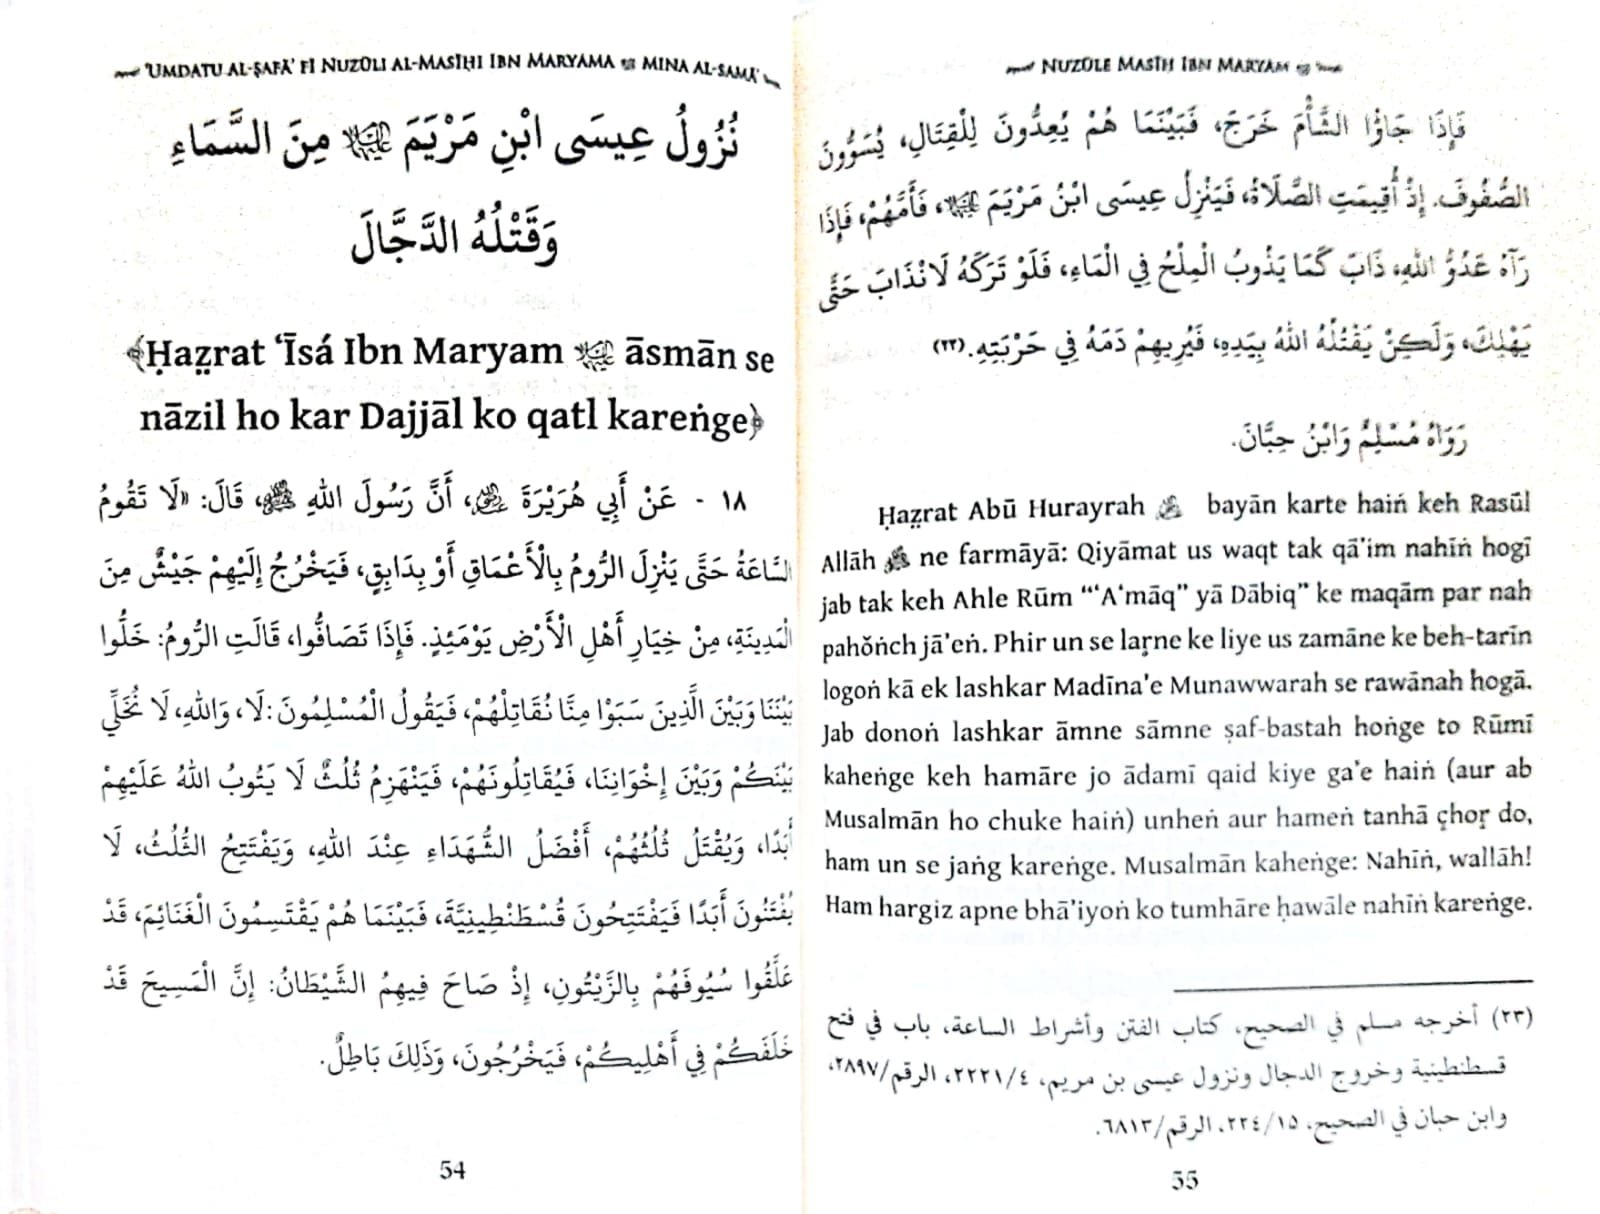 'UMDATU AL-ṢAFĀ' FĪ NUZŪLI AL-MASĪḤI IBN MARYAMA MINA AL-SAMĀ'
نُزُولُ عِيسَى ابْنِ مَرْيَمَ عليه السلام مِنَ السَّمَاءِ
وَقَتْلُهُ الدَّجَّالَ
﴾Ḥaz̤rat ‘Īsá Ibn Maryam عليه السلام āsmān se
nāzil ho kar Dajjāl ko qatl kareṅge﴿
١٨ - عَنْ أَبِي هُرَيْرَةَ رضي الله عنه، أَنَّ رَسُولَ اللهِ ﷺ، قَالَ: «لَا تَقُومُ
السَّاعَةُ حَتَّى يَنْزِلَ الرُّومُ بِالْأَعْمَاقِ أَوْ بِدَابِقٍ، فَيَخْرُجُ إِلَيْهِمْ جَيْشٌ مِنَ
الْمَدِينَةِ، مِنْ خِيَارِ أَهْلِ الْأَرْضِ يَوْمَئِذٍ. فَإِذَا تَصَافُّوا، قَالَتِ الرُّومُ: خَلُّوا
بَيْنَنَا وَبَيْنَ الَّذِينَ سَبَوْا مِنَّا نُقَاتِلْهُمْ، فَيَقُولُ الْمُسْلِمُونَ: لَا، وَاللهِ، لَا نُخَلِّي
بَيْنَكُمْ وَبَيْنَ إِخْوَانِنَا، فَيُقَاتِلُونَهُمْ، فَيَنْهَزِمُ ثُلُثٌ لَا يَتُوبُ اللهُ عَلَيْهِمْ
أَبَدًا، وَيُقْتَلُ ثُلُثُهُمْ، أَفْضَلُ الشُّهَدَاءِ عِنْدَ اللهِ، وَيَفْتَتِحُ الثُّلُثُ، لَا
يُفْتَنُونَ أَبَدًا فَيَفْتَتِحُونَ قُسْطَنْطِينِيَّةَ، فَبَيْنَمَا هُمْ يَقْتَسِمُونَ الْغَنَائِمَ، قَدْ
عَلَّقُوا سُيُوفَهُمْ بِالزَّيْتُونِ، إِذْ صَاحَ فِيهِمُ الشَّيْطَانُ: إِنَّ الْمَسِيحَ قَدْ
خَلَفَكُمْ فِي أَهْلِيكُمْ، فَيَخْرُجُونَ، وَذَلِكَ بَاطِلٌ.
54
NUZŪLE MASĪḤ IBN MARYAM
فَإِذَا جَاؤُا الشَّأْمَ خَرَجَ، فَبَيْنَمَا هُمْ يُعِدُّونَ لِلْقِتَالِ، يُسَوُّونَ
الصُّفُوفَ. إِذْ أُقِيمَتِ الصَّلَاةُ، فَيَنْزِلُ عِيسَى ابْنُ مَرْيَمَ عليه السلام، فَأَمَّهُمْ، فَإِذَا
رَآهُ عَدُوُّ اللهِ، ذَابَ كَمَا يَذُوبُ الْمِلْحُ فِي الْمَاءِ، فَلَوْ تَرَكَهُ لَانْذَابَ حَتَّى
يَهْلِكَ، وَلَكِنْ يَقْتُلُهُ اللهُ بِيَدِهِ، فَيُرِيهِمْ دَمَهُ فِي حَرْبَتِهِ.(٢٣)
رَوَاهُ مُسْلِمٌ وَابْنُ حِبَّانَ.
Ḥaz̤rat Abū Hurayrah رضي الله عنه bayān karte haiṅ keh Rasūl
Allāh ﷺ ne farmāyā: Qiyāmat us waqt tak qā'im nahīṅ hogī
jab tak keh Ahle Rūm “‘A‘māq” yā Dābiq” ke maqām par nah
pahŏṅch jā'eṅ. Phir un se laṛne ke liye us zamāne ke beh-tarīn
logoṅ kā ek lashkar Madīna'e Munawwarah se rawānah hogā.
Jab donoṅ lashkar āmne sāmne ṣaf-bastah hoṅge to Rūmī
kaheṅge keh hamāre jo ādamī qaid kiye ga'e haiṅ (aur ab
Musalmān ho chuke haiṅ) unheṅ aur hameṅ tanhā çhoṛ do,
ham un se jaṅg kareṅge. Musalmān kaheṅge: Nahīṅ, wallāh!
Ham hargiz apne bhā'iyoṅ ko tumhāre ḥawāle nahīṅ kareṅge.
(٢٣) أخرجه مسلم في الصحيح، كتاب الفتن وأشراط الساعة، باب في فتح
قسطنطينية وخروج الدجال ونزول عيسى بن مريم، ٤/٢٢٢١، الرقم/٢٨٩٧،
وابن حبان في الصحيح، ١٥/٢٢٤، الرقم/٦٨١٣.
55